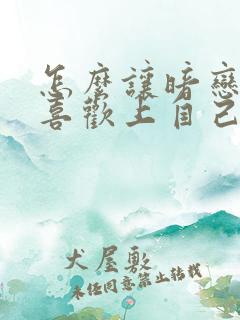 怎麼讓暗戀
喜歡上自己
犬屋敷
未任同意禁止轉載